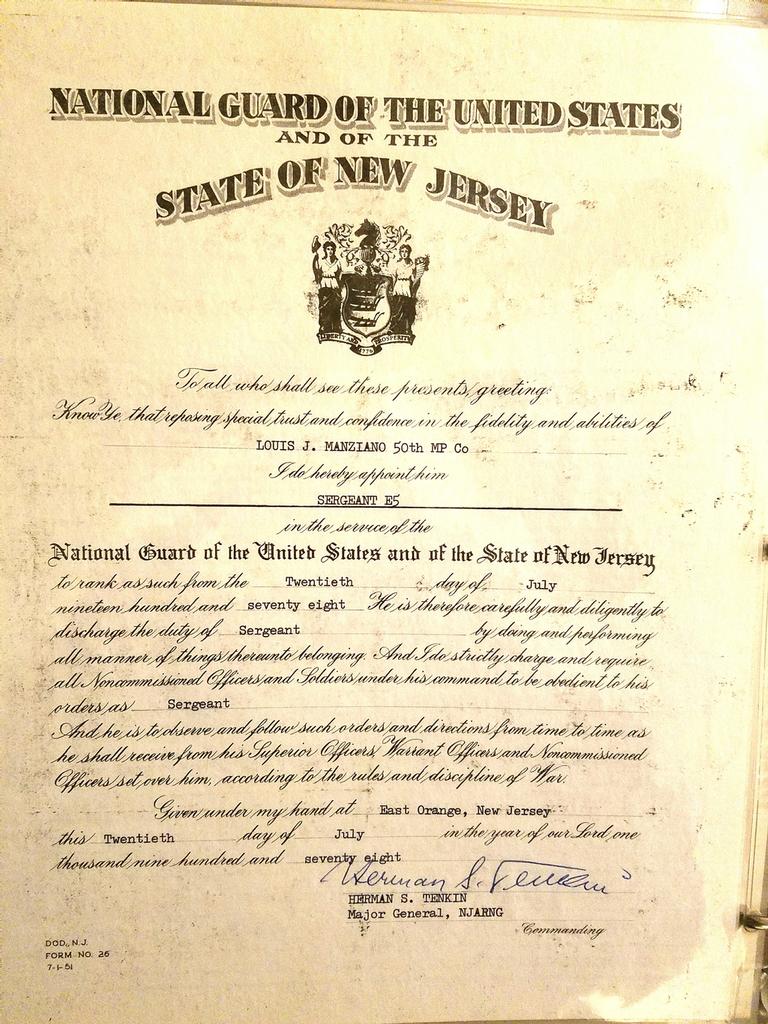 NATIONAL GUARD OF THE UNITED STATES
AND OF THE
STATE OF NEW JERSEY
LIBERTY AND PROSPERITY
1776
To all who shall see these presents, greeting:
Know Ye, that reposing special trust and confidence in the fidelity and abilities of
LOUIS J. MANZIANO 50th MP Co
I do hereby appoint him
SERGEANT E5
in the service of the
National Guard of the United States and of the State of New Jersey
to rank as such from the Twentieth day of July
nineteen hundred and seventy eight He is therefore carefully and diligently to
discharge the duty of Sergeant by doing and performing
all manner of things thereunto belonging. And I do strictly charge and require
all Noncommissioned Officers and Soldiers under his command to be obedient to his
orders as Sergeant
And he is to observe and follow such orders and directions from time to time as
he shall receive from his Superior Officers, Warrant Officers and Noncommissioned
Officers set over him, according to the rules and discipline of War.
Given under my hand at East Orange, New Jersey
this Twentieth day of July in the year of our Lord one
thousand nine hundred and seventy eight
Herman S. Tenkin
HERMAN S. TENKIN
Major General, NJARNG
Commanding
DOD., N.J.
FORM NO. 26
7-1-51